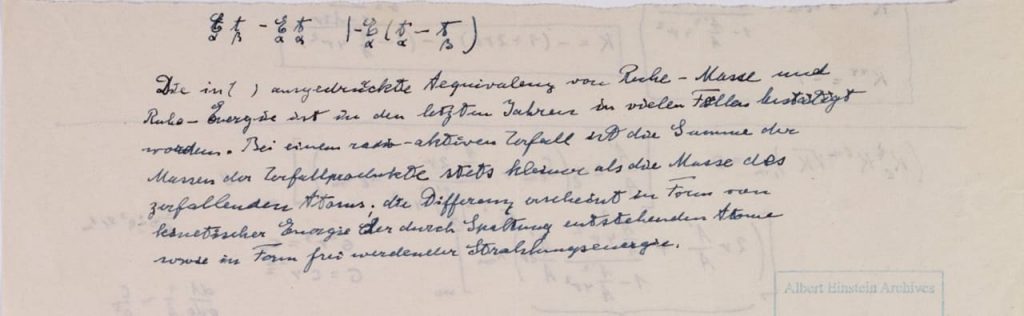 Die in ( ) ausgedrückte Aequivalenz von Ruhe-Masse und
Ruhe-Energie ist in den letzten Jahren in vielen Fällen bestätigt
worden. Bei einem radio-aktiven Zerfall ist die Summe der
Massen der Zerfallprodukte stets kleiner als die Masse des
zerfallenden Atoms; die Differenz erscheint in Form von
kinetischer Energie der durch Spaltung entstehenden Atome
sowie in Form frei werdender Strahlungsenergie.
Albert Einstein Archives